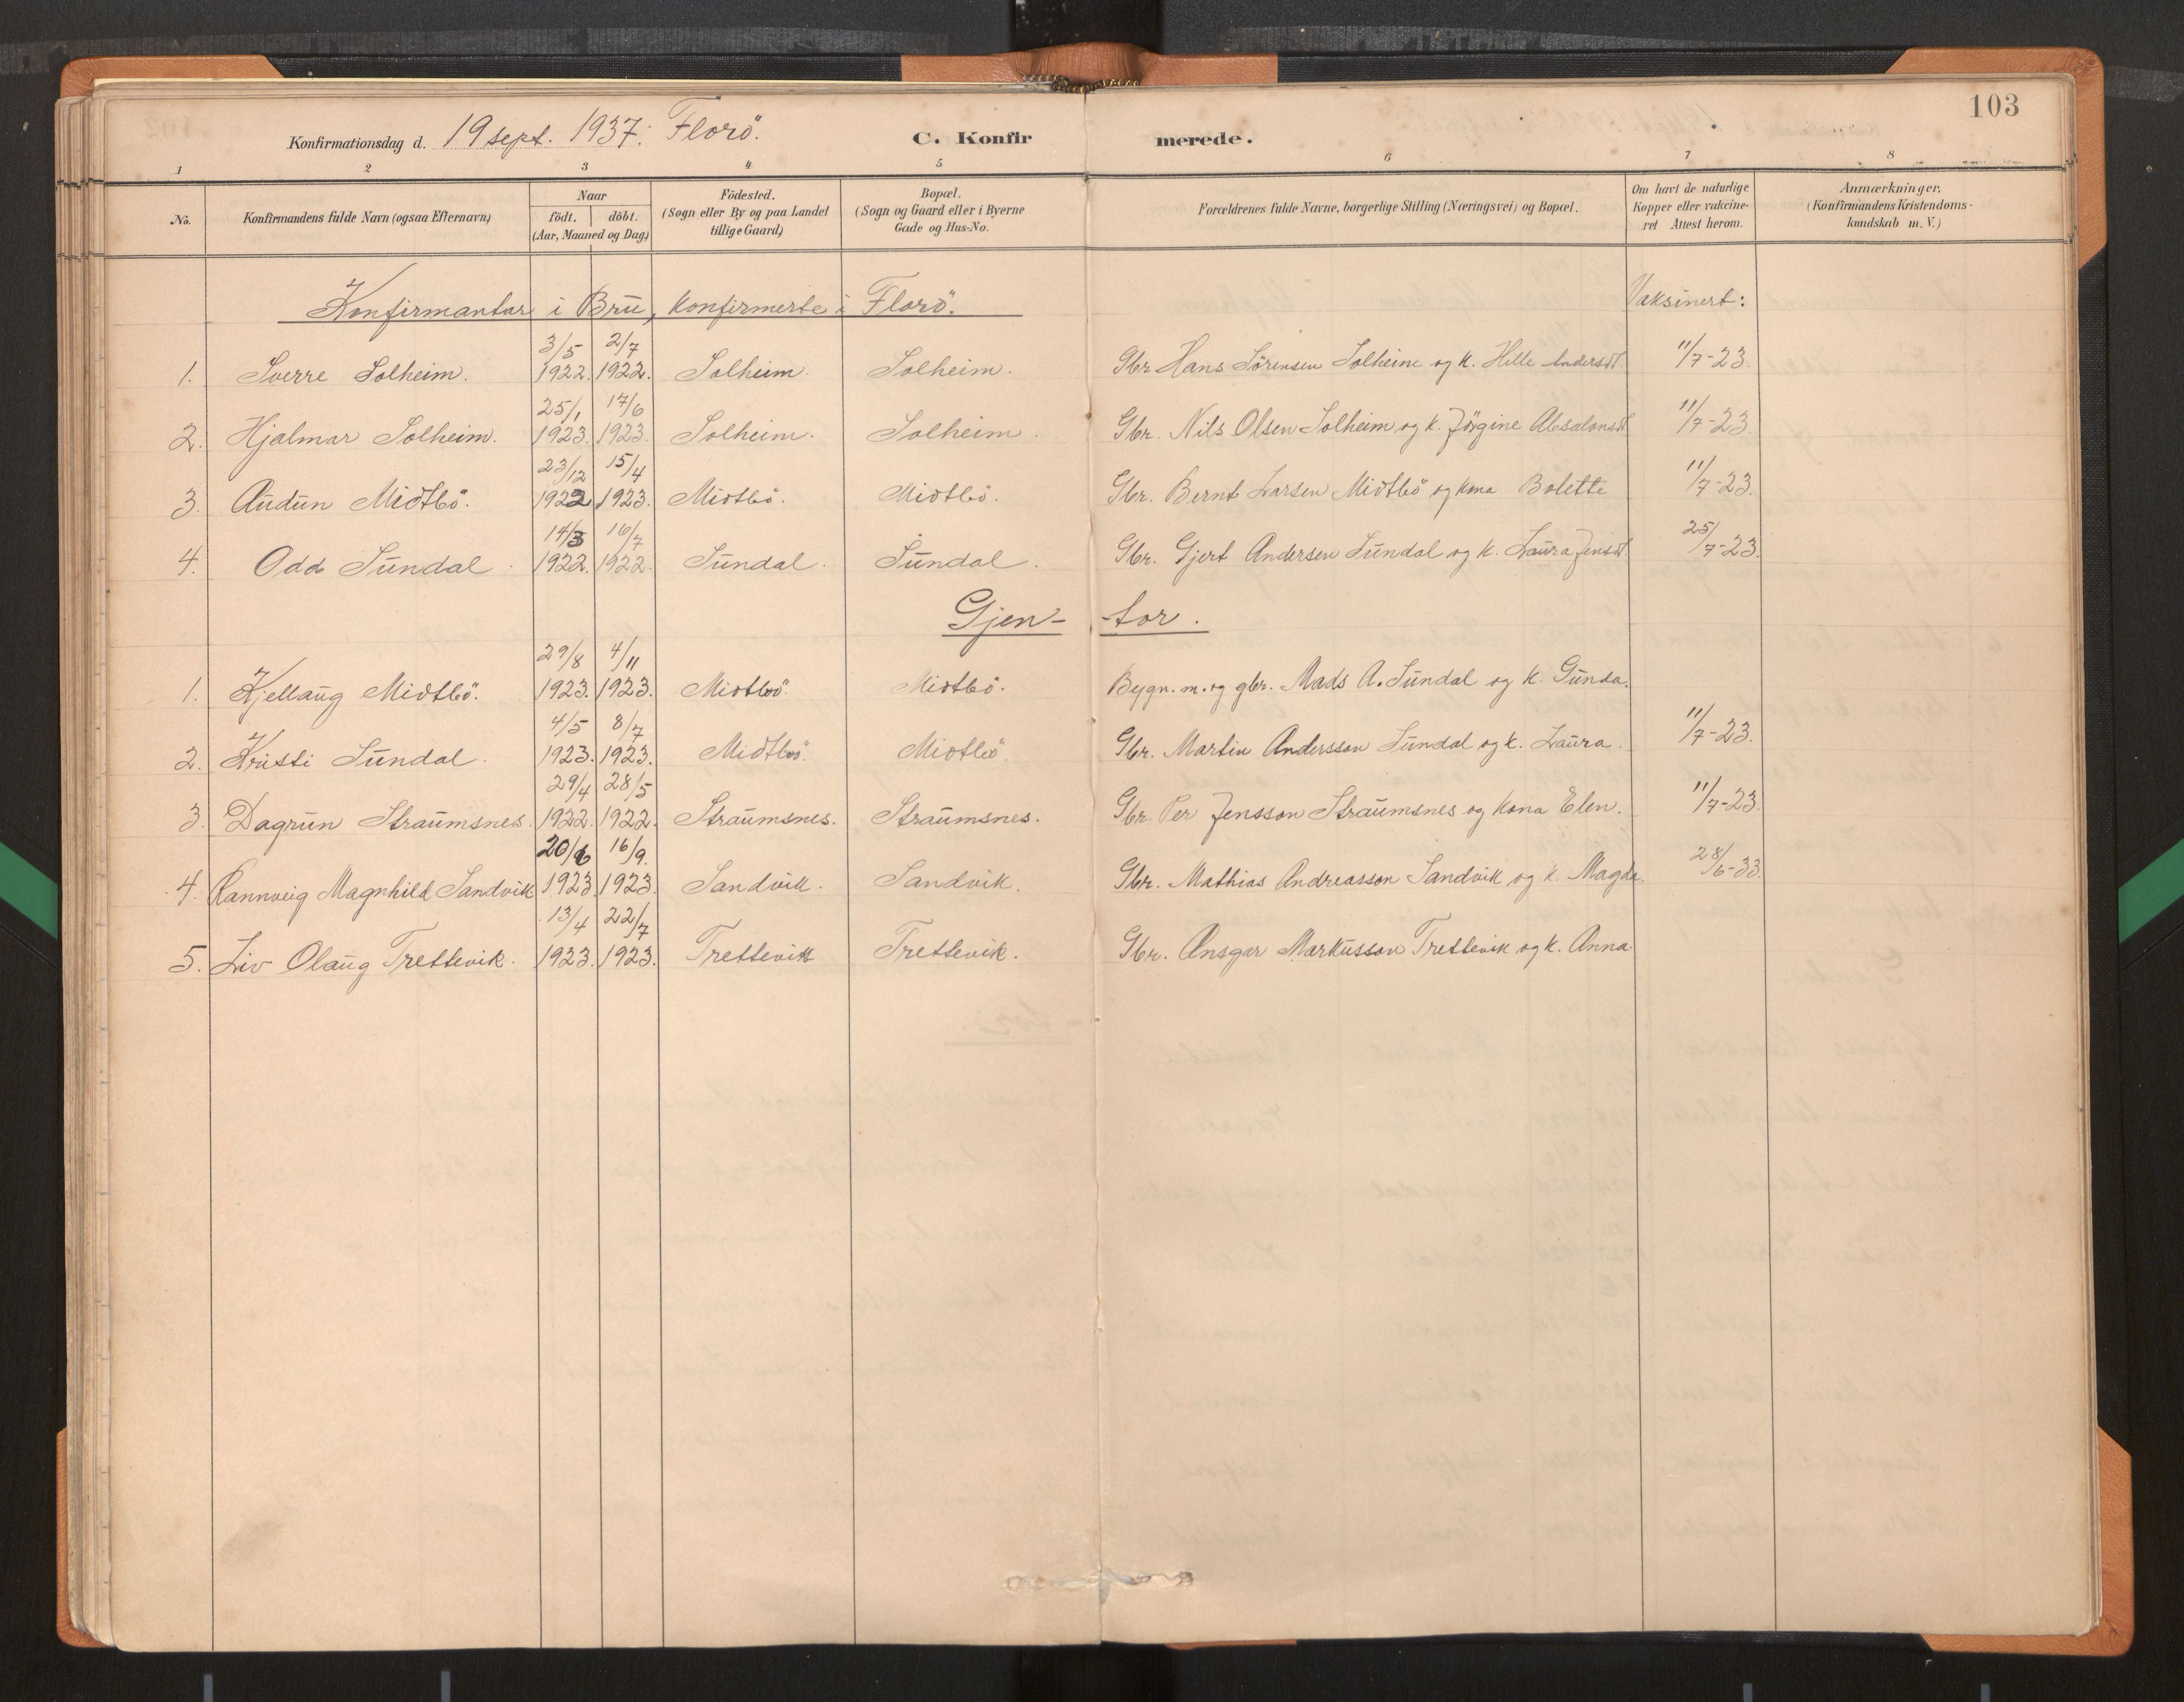 103
Konfirmationsdag d. 19 sept. 1937. Florö. C. Konfirmerede.
1 2 3 4 5 6 7 8
No. Konfirmandens fulde Navn (ogsaa Efternavn) Naar födt. döbt. (Aar, Maaned og Dag) Födested. (Sogn eller By og paa Landet tillige Gaard) Bopæl. (Sogn og Gaard eller i Byerne Gade og Hus-No. Forældrenes fulde Navne, borgerlige Stilling (Næringsvei) og Bopæl. Om havt de naturlige Kopper eller vakcineret Attest herom. Anmærkninger. (Konfirmandens Kristendomskundskab m. V.)
Konfirmantar i Bru, konfirmerte i Florö. Vaksinert:
1. Sverre Solheim. 3/5 1922. 2/7 1922. Solheim. Solheim. Gbr Hans Sörensen Solheim og k. Hille Andersdt. 11/7-23.
2. Hjalmar Solheim. 25/1 1923. 17/6 1923. Solheim. Solheim. Gbr. Nils Olsen Solheim og k. Jörgine Absalonsdt 11/7-23.
3. Audun Midtbö. 23/12 1922 15/4 1923. Midtbö. Midtbö. Gbr. Bernt Larsen Midtbö og kona Bolette 11/7-23.
4. Odd Sundal. 14/3 1922. 16/7 1922. Sundal. Sundal. Gbr. Gjert Andersen Sundal og k. Laura Jensdt. 25/7-23.
Gjen- -tor.
1. Kjellaug Midtbö. 29/8 1923. 4/11 1923. Midtbö. Midtbö. Bygn. m. og gbr. Mads A. Sundal og k. Gunda.
2. Kristi Sundal. 4/5 1923. 8/7 1923. Midtbö. Midtbö. Gbr. Martin Andersson Sundal og k. Laura. 11/7-23.
3. Dagrun Straumsnes. 29/4 1922. 28/5 1922. Straumsnes. Straumsnes. Gbr. Per Jensson Straumsnes og kona Elen. 11/7-23.
4. Rannveig Magnhild Sandvik 20/6 1923 16/9. 1923. Sandvik. Sandvik. Gbr. Mathias Andreasson Sandvik og k. Magda. 28/6-33.
5. Liv Olaug Trettevik. 13/4 1923. 22/7 1923. Trettevik Trettevik. Gbr. Ansgar Markusson Trettevik og k. Anna